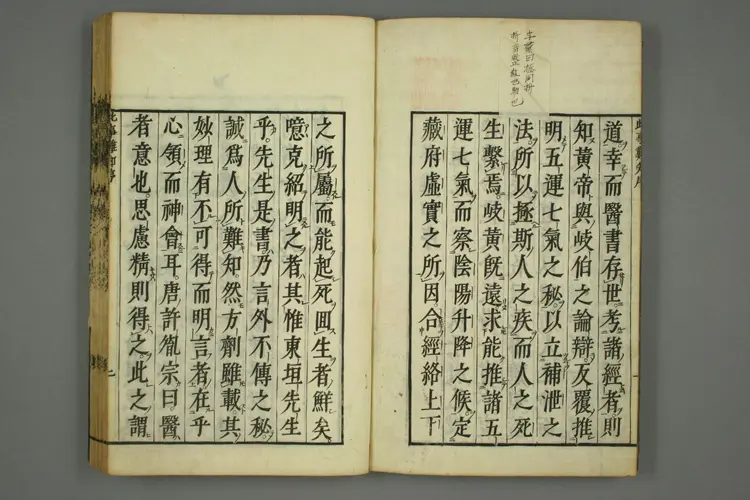 字彙曰拯同拼
道幸而醫書存世考諸經者則
知黃帝與岐伯之論辯反覆推
明五運七氣之秘以立補泄之
法所以拯斯人之疾而人之死
生繫焉岐黃旣遠求能推諸五
運七氣而察陰陽升降之候定
藏府虛實之所因合經絡上下
之所屬而能起死回生者鮮矣
噫克紹明之者其惟東垣先生
乎先生是書乃言外不傳之秘
誠爲人所難知然方劑雖載其
妙理有不可得而明言者在乎
心領而神會耳唐許胤宗曰醫
者意也思慮精則得之此之謂
此事難知序
二